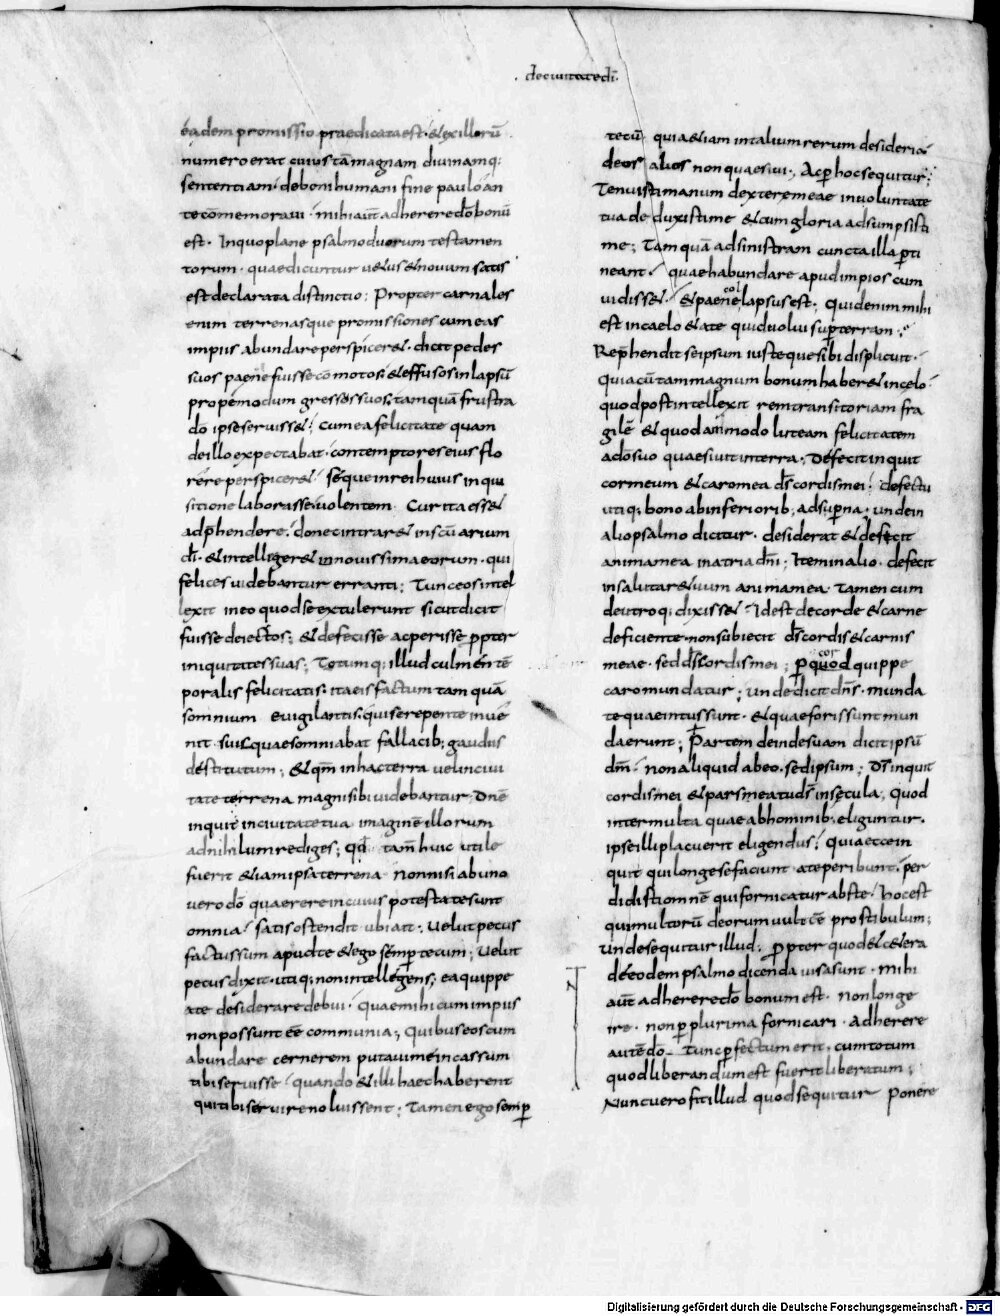 decivitatedi.
eadem promissio praedicata est. & ex illorū
numero erat cuius tā magnam diuinamq;
sententiam. de boni humani fine paulo an
te cōmemoraui. mihi aūt adherere dō bonū
est. In quo plane psalmo duorum testamen
torum. quae dicuntur uetus & nouum satis
est declarata distinctio; Propter carnales
enim terrenasque promissiones cum eas
impiis abundare perspicer&. dicit pedes
suos paene fuisse cōmotos. & effusos in lapsū
propemodum gressos suos. tamquā frustra
dō ipse seruiss&. cum ea felicitate quam
de illo expectabat. contemptores eius flo
rere perspicer&. seque in rei huius inqui
sitione laborasse uolentem. Cur ita ess&
adphendere. donec intrar& in scūarium
dī. & intelliger& in nouissima eorum. qui
felices uidebantur erranti; Tunc eos intel
lexit in eo quod se extulerunt sicut dicit
fuisse deiectos; & defecisse ac perisse ppter
iniquitates suas; Totumq; illud culmen tē
poralis felicitatis. ita eis factum tam quā
somnium euigilantis. qui se repente inue
nit. suis quae somniabat fallacib; gaudiis
destitutum; & qm̄ in hac terra uel in ciui
tate terrena magni sibi uidebantur. Dnē
inquit in ciuitate tua imaginē illorum
ad nihilum rediges; Qd tam huic utile
fuerit & iam ipsa terrena non nisi ab uno
uero dō quaerere in cuius potestate sunt
omnia. satis ostendit ubi ait. Velut pecus
factus sum apud te & ego semp tecum; Velut
pecus dixit. utiq; non intellegens; ea quippe
a te desiderare debui. quae mihi cum impiis
non possunt ēē communia; Quibus eos cum
abundare cernerem putaui me incassum
tibi seruisse. quando & illi haec haberent
qui tibi seruire noluissent; Tamen ego semp
tecū quia & iam in talium rerum desideria
deos alios non quaesiui; Ac p hoc sequitur;
Tenuisti manum dexterae meae in uoluntate
tua deduxisti me & cum gloria adsumpsisti
me; Tamquā ad sinistram cuncta illa pti
neant. quae habundare apud impios cum
uidiss&. & paene col lapsus est; Quid enim mihi
est in caelo & a te quid uolui sup terram;
Rephendit se ipsum iusteque sibi displicuit.
Quia cū tam magnum bonum haber& in celo.
quod post intellexit rem transitoriam fra
gilē & quodammodo luteam felicitatem
a dō suo quaesiuit in terra. Defecit inquit
cor meum & caro mea dš cordis mei; defectu
utiq; bono ab inferiorib; ad supna. unde in
alio psalmo dicitur. desiderat & defecit
anima mea in atria dn̄i; Item in alio. defecit
in salutare tuum anima mea. Tamen cum
de utroq; dixiss&. Id est de corde & carne
deficiente. non subiecit dš cordis & carnis
meae. sed dš cordis mei; p cor quod quippe
caro mundatur; unde dicit dn̄s. munda
te quae intus sunt. & quae foris sunt mun
da erunt; Partem deinde suam dicit ipsū
dm̄. non aliquid ab eo. sed ipsum; Dš inquit
cordis mei & pars mea dš in secula; quod
inter multa quae ab hominib; eliguntur.
ipse illi placuerit eligendus; quia ecce in
quit qui longe se faciunt a te peribunt. per
didisti omnē qui fornicatur abs te. hoc est
qui multorū deorum uult ēē prostibulum;
Unde sequitur illud; ppter quod & cetera
de eodem psalmo dicenda uisa sunt. mihi
aūt adherere dō bonum est. non longe
ire. non p plurima fornicari. Adherere
autē dō. tunc pfectum erit. cum totum
quod liberandum est fuerit liberatum;
Nunc uero fit illud quod sequitur Ponere
Digitalisierung gefördert durch die Deutsche Forschungsgemeinschaft - DFG